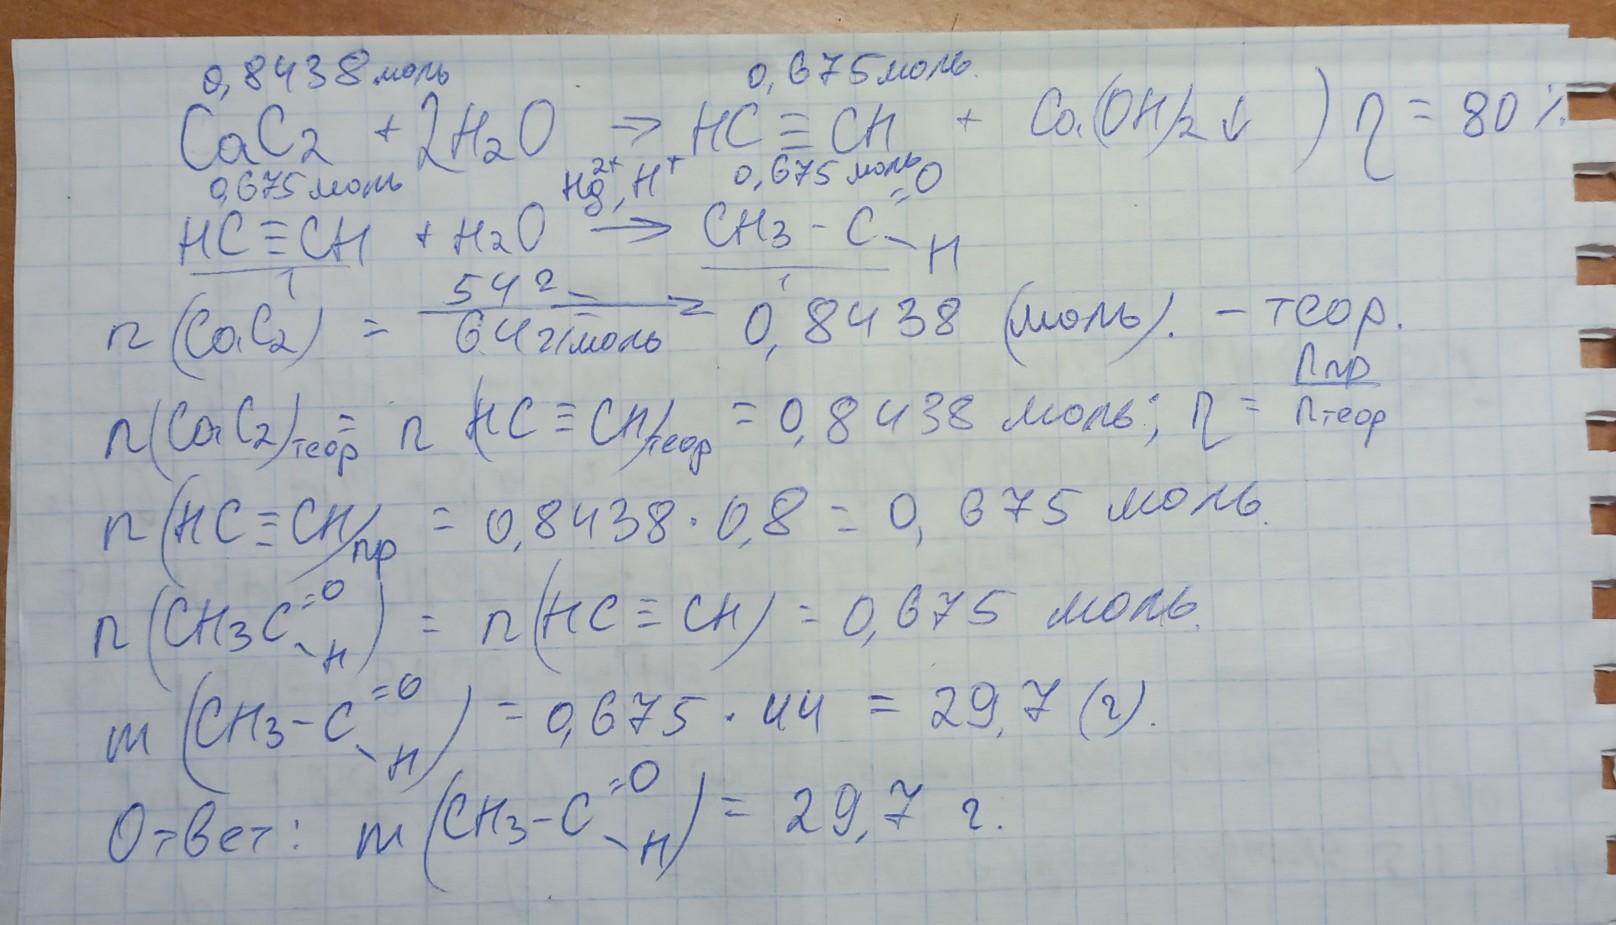 0,8438 моль 0,675 моль.
CaC2 + 2H2O → HC≡CH + Ca(OH)2↓ ) η = 80%
0,675 моль Hg2+, H+ 0,675 моль
HC≡CH + H2O → CH3-C=O-H
1 1
n(CaC2) = 54г / 64г/моль = 0,8438 (моль). - теор.
n(CaC2)теор = n(HC≡CH)теор = 0,8438 моль; η = nпр / nтеор
n(HC≡CH)пр = 0,8438·0,8 = 0,675 моль.
n(CH3C=O-H) = n(HC≡CH) = 0,675 моль.
m(CH3-C=O-H) = 0,675·44 = 29,7 (г).
Ответ: m(CH3-C=O-H) = 29,7 г.